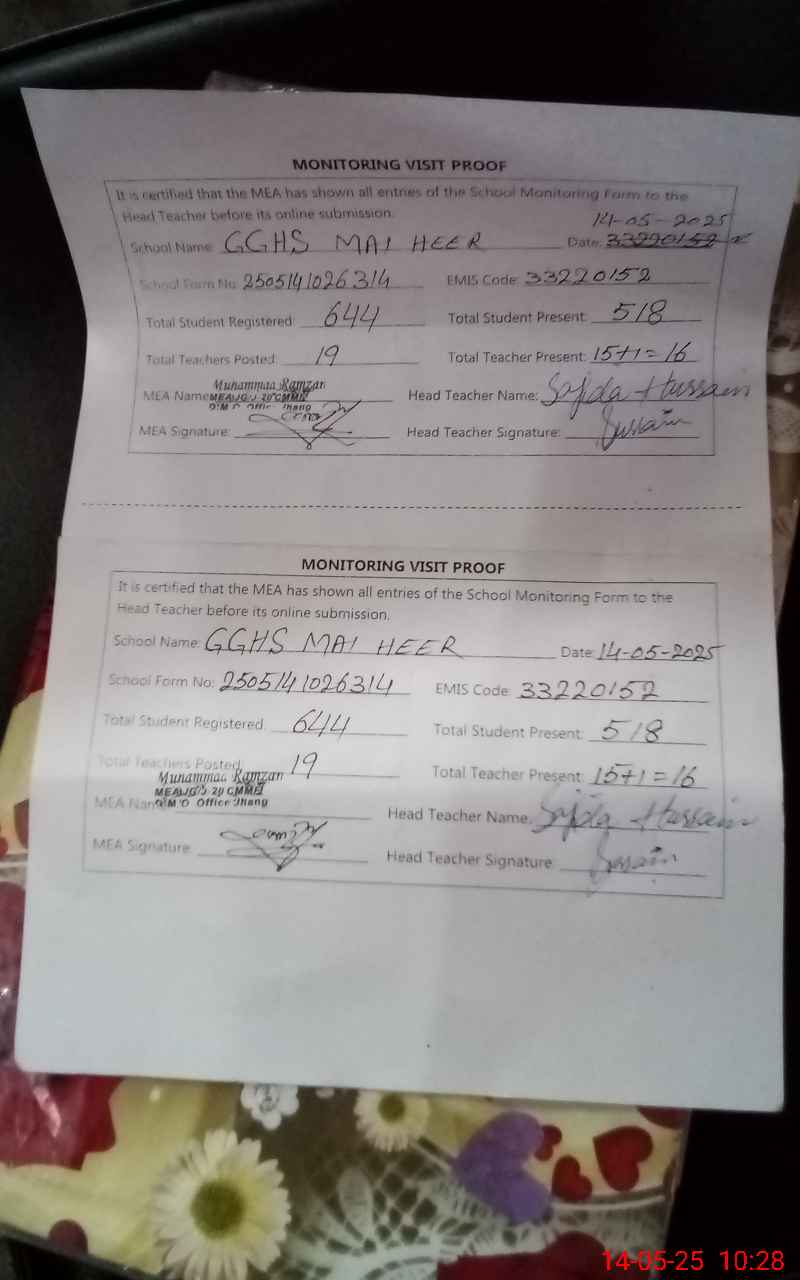 MONITORING VISIT PROOF
It is certified that the MEA has shown all entries of the School Monitoring Form to the
Head Teacher before its online submission.
14-05-2025
School Name: GGHS MAI HEER Date: 33220152
School Form No: 2505141026314 EMIS Code: 33220152
Total Student Registered: 644 Total Student Present: 518
Total Teachers Posted: 19 Total Teacher Present: 15+1=16
Muhammad Ramzan
MEA Name Head Teacher Name: Sajida Hussain
D.M.O Office Jhang
MEA Signature: Head Teacher Signature: Hussain
MONITORING VISIT PROOF
It is certified that the MEA has shown all entries of the School Monitoring Form to the
Head Teacher before its online submission.
School Name: GGHS MAI HEER Date: 14-05-2025
School Form No: 2505141026314 EMIS Code: 33220152
Total Student Registered: 644 Total Student Present: 518
Total Teachers Posted: 19 Total Teacher Present: 15+1=16
Muhammad Ramzan
MEA Name D.M.O Office Jhang Head Teacher Name: Sajida Hussain
MEA Signature: Head Teacher Signature: Hussain
14-05-25 10:28